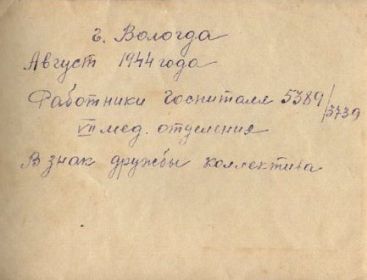 г. Вологда
Август 1944 года
Работники Госпиталя 5389/3739
VII мед. отделения
В знак дружбы коллектива